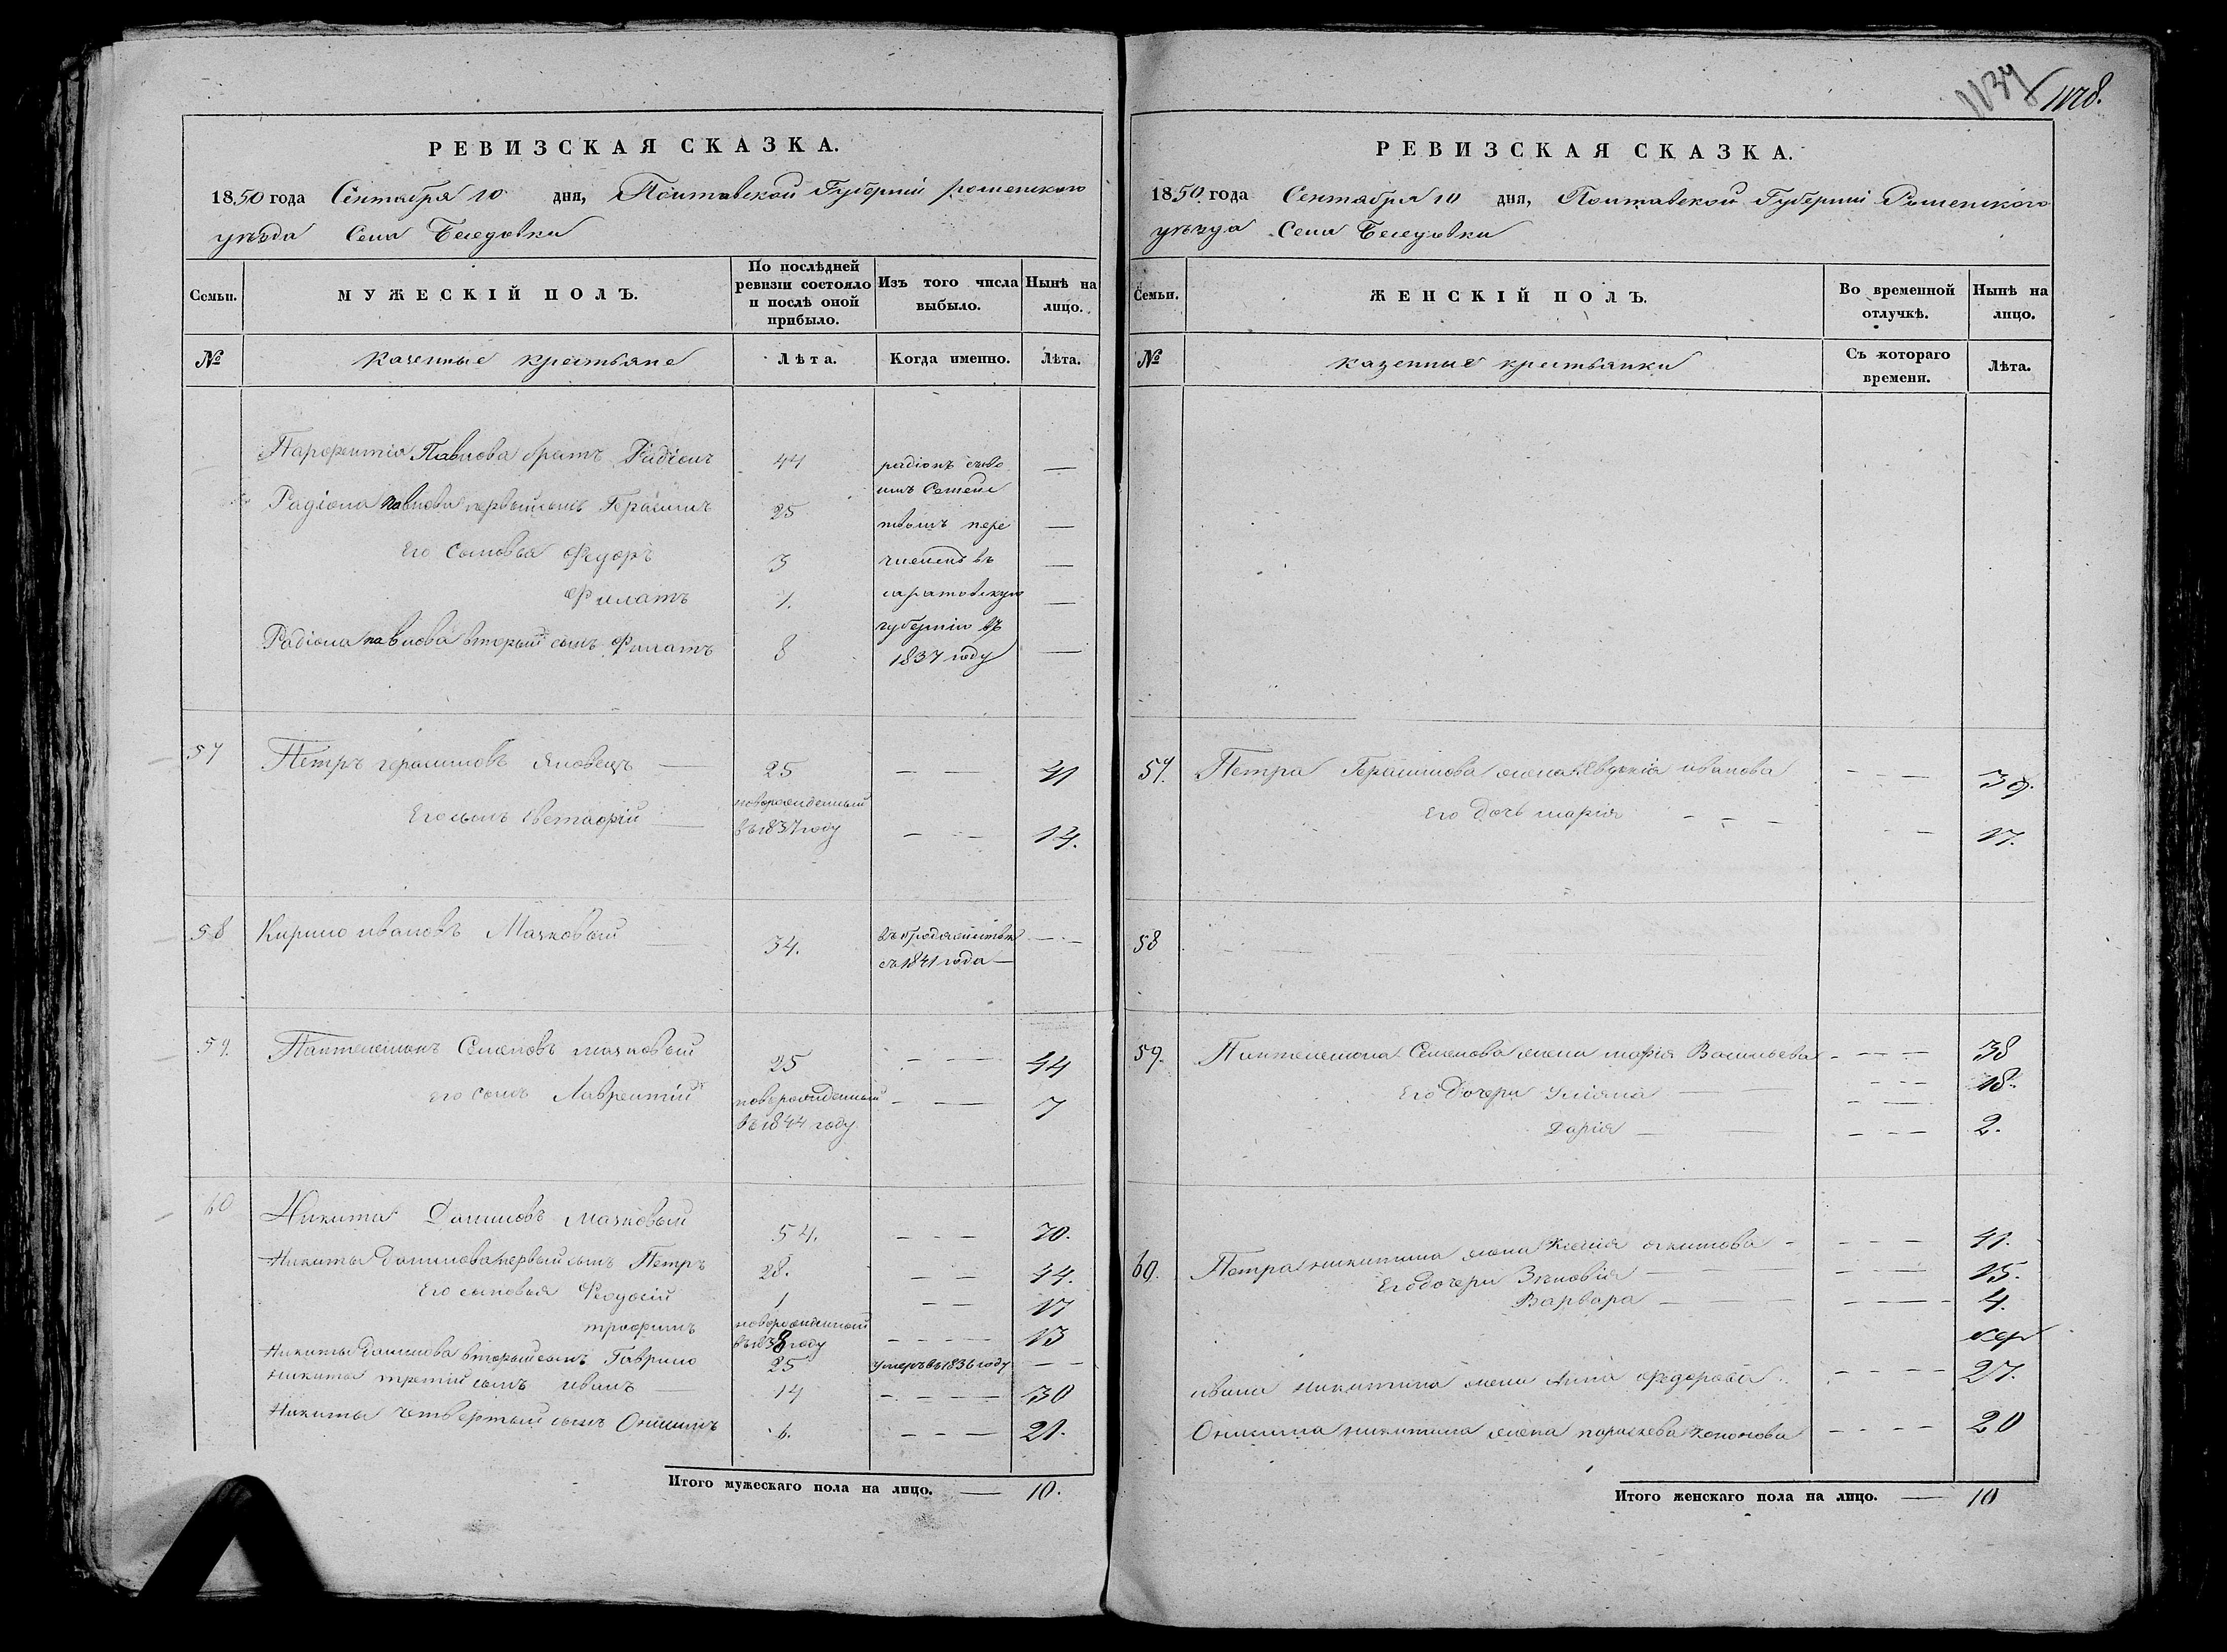 1137 1128.
РЕВИЗСКАЯ СКАЗКА.
1850 года Сентября 10 дня, Полтавской Губерніи роменскаго
уезда Села Беседовки
Семьи.
МУЖЕСКІЙ ПОЛЪ.
По послѣдней ревизіи состояло и послѣ оной прибыло.
Изъ того числа выбыло.
Нынѣ на лицо.
№
казенные крестьяне
Лѣта.
Когда именно.
Лѣта.
Парфентія Павлова братъ Радіонъ 44 —
Радіона павлова первый сынъ Герасимъ 25 —
Его сыновья Федоръ 3 —
Филатъ 1. —
Радіона павлова вторый сынъ Филатъ 8 —
радіонъ съ во
имъ Семейс
твомъ пере
численъ въ
саратовскую
губернію въ
1837 году
57 Петръ герасимовъ Яновецъ — 25 — — 41
новорожденный
Его сынъ — въ 1837 году — — 14.
58 Кирило ивановъ Мачковый — 34. въ бродяжествѣ — —
съ 1841 года —
59. Пантелеимонъ Семеновъ мачковый 25 — — 44
его сынъ Лаврентій новорожденный — — 7
въ 1844 году
60 Никита Даниловъ мачковый 54. — — — 70.
Никиты Данилова первый сынъ Петръ 28. — — 44.
Его сыновья Феодосій 1 — — 17
новорожденный
трофимъ въ 1838 году — — — — 13
Никиты Данилова вторый сынъ Гаврило 25 умеръ въ 1836 году — —
Никиты третій сынъ иванъ — 14 — — — — 30
Никиты четвертый сынъ Онисимъ 6. — — — 21.
Итого мужескаго пола на лицо. — 10.
РЕВИЗСКАЯ СКАЗКА.
1850 года Сентября 10 дня, Полтавской Губерніи Роменскаго
уезда Села Беседовки
Семьи.
ЖЕНСКІЙ ПОЛЪ.
Во временной отлучкѣ.
Нынѣ на лицо.
№
казенные крестьянки
Съ котораго времени.
Лѣта.
57. Петра Герасимова жена Евдокія иванова — — — 39.
Его дочь марія — — — — — 17.
58
59. Пантелеимона Семенова жена марія Васильева — — — 38
Его дочери Уліяна — — — 18.
Дарія — — — — — 2.
60. Петра никитина жена Ксенія — — — — 41.
Его дочери Зѣновія — — — — 15.
Варвара — — — — — — 4.
ивана никитина жена Анна Федорова — — — — 27.
Онисима никитина жена параскева кононова — — — — 20
Итого женскаго пола на лицо. — 10